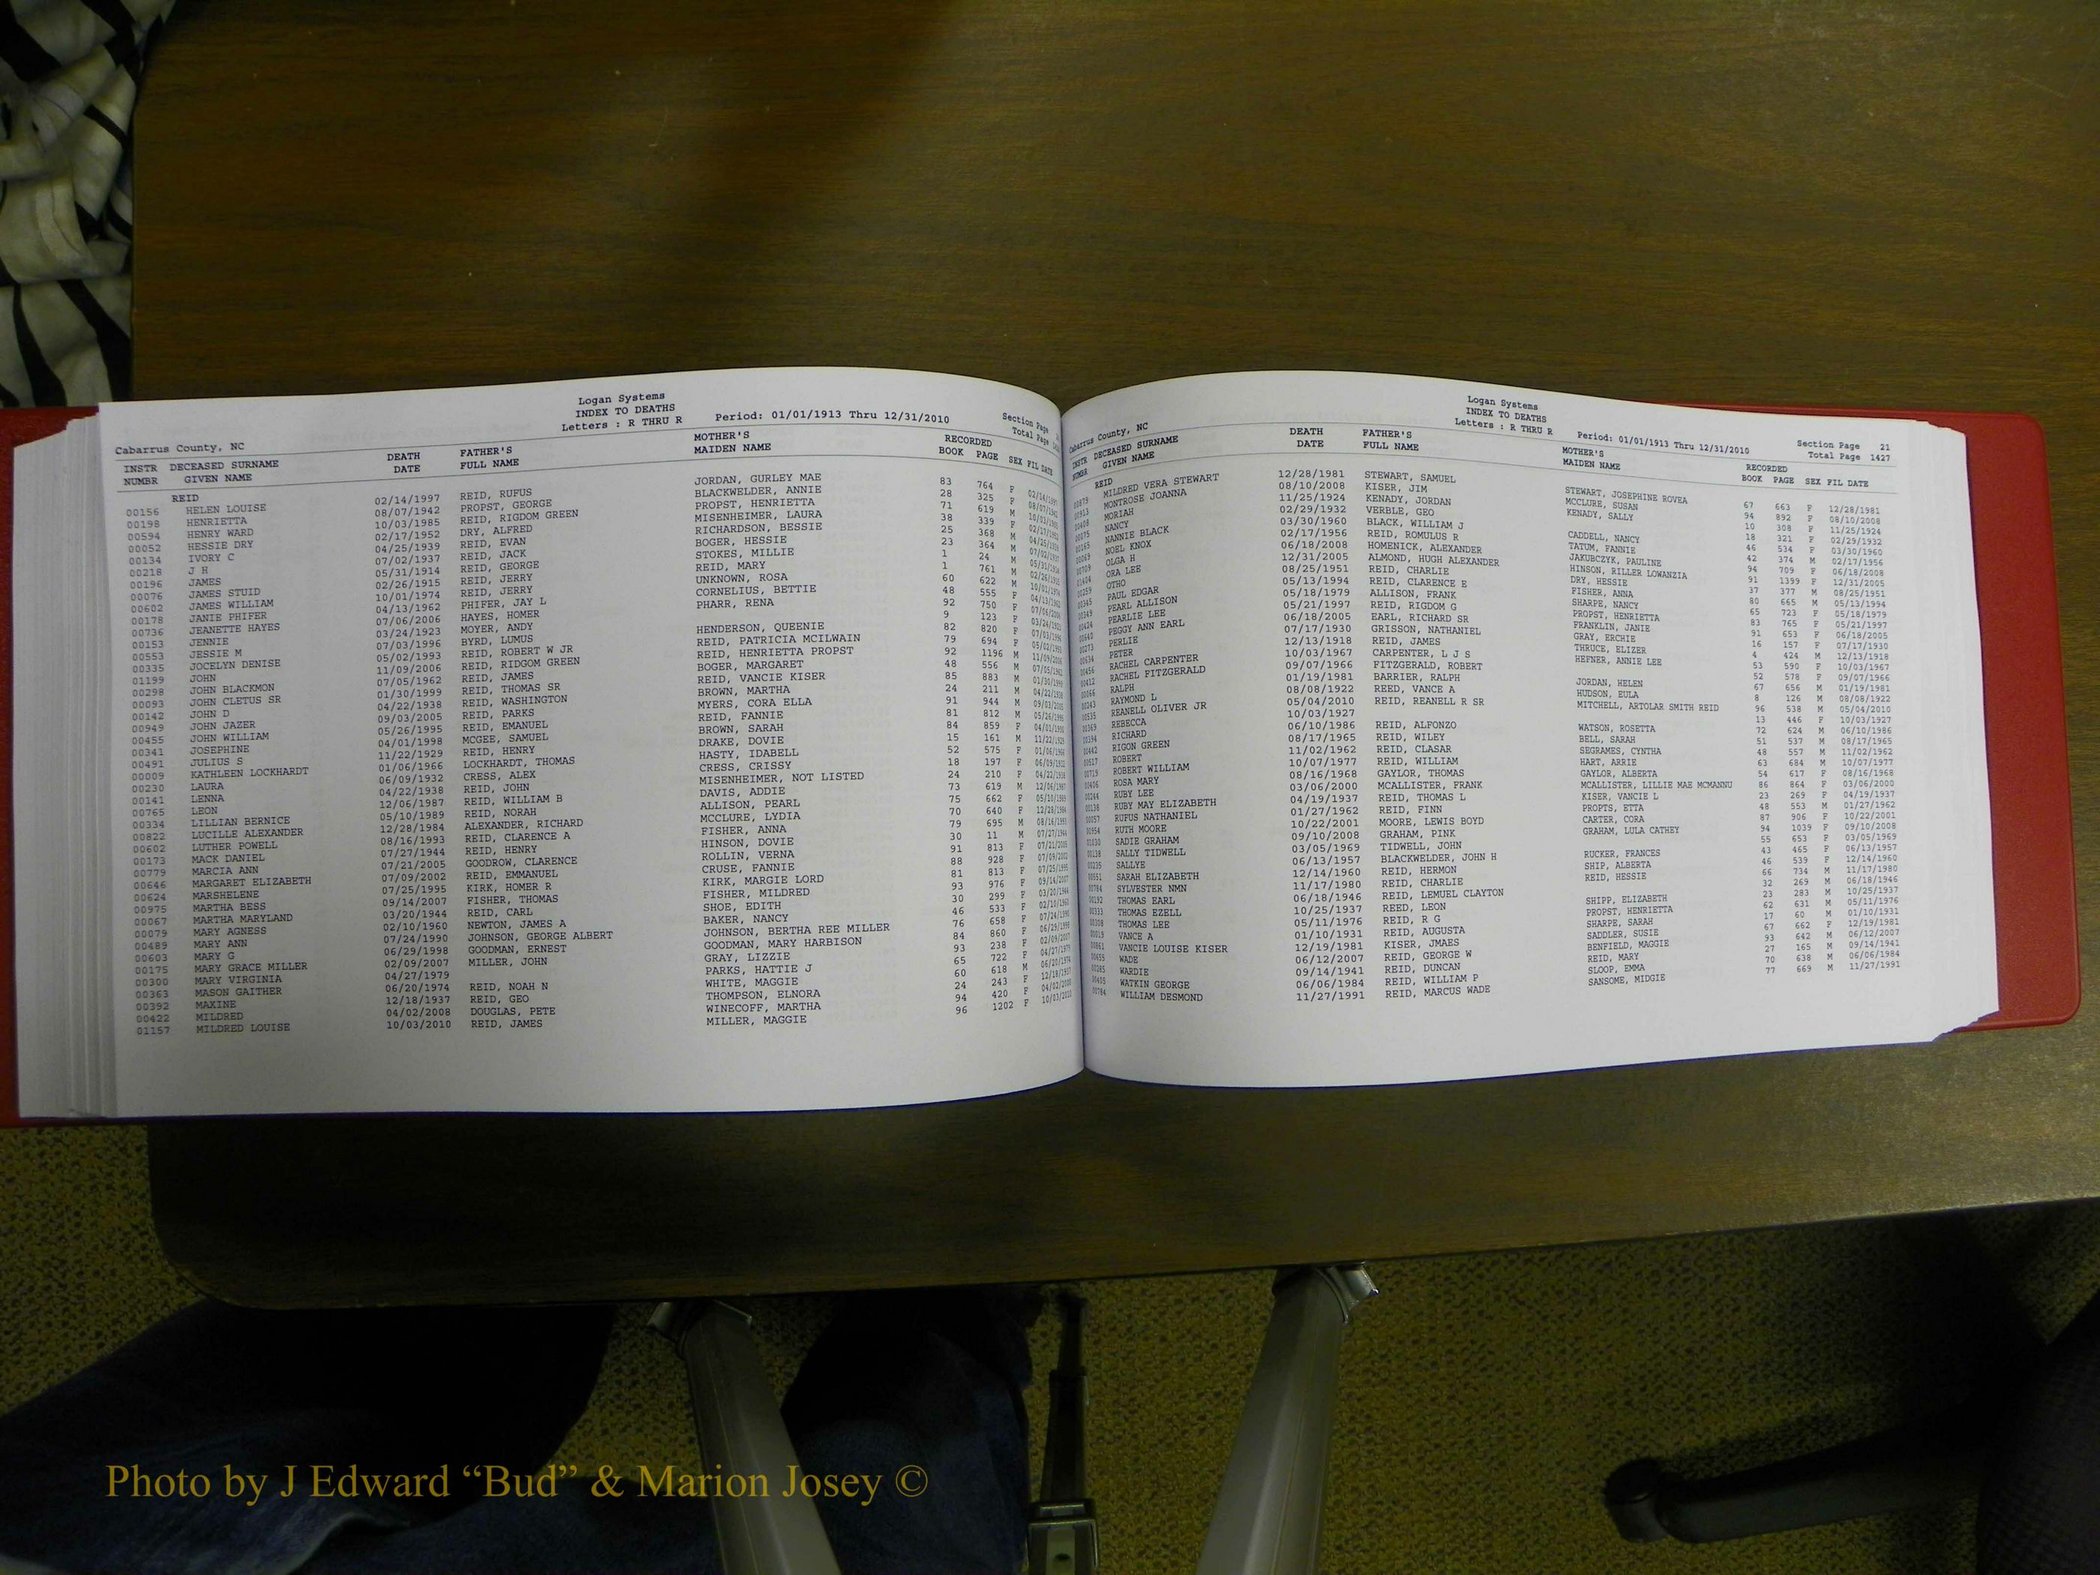 Logan Systems
INDEX TO DEATHS
Letters : R THRU R Period: 01/01/1913 Thru 12/31/2010
Cabarrus County, NC Section Page
Total Page
INSTR DECEASED SURNAME DEATH FATHER'S MOTHER'S RECORDED
NUMBR GIVEN NAME DATE FULL NAME MAIDEN NAME BOOK PAGE SEX FIL DATE
REID
00156 HELEN LOUISE 02/14/1997 REID, RUFUS JORDAN, GURLEY MAE 83 764 F 02/14/1997
00198 HENRIETTA 08/07/1942 PROPST, GEORGE BLACKWELDER, ANNIE 28 325 F 08/07/1942
00594 HENRY WARD 10/03/1985 REID, RIGDOM GREEN PROPST, HENRIETTA 71 619 M 10/03/1985
00052 HESSIE DRY 02/17/1952 DRY, ALFRED MISENHEIMER, LAURA 38 339 F 02/17/1952
00134 IVORY C 04/25/1939 REID, EVAN RICHARDSON, BESSIE 25 368 M 04/25/1939
00218 J H 07/02/1937 REID, JACK BOGER, HESSIE 23 364 M 07/02/1937
00196 JAMES 05/31/1914 REID, GEORGE STOKES, MILLIE 1 24 M 05/31/1914
00076 JAMES STUID 02/26/1915 REID, JERRY REID, MARY 1 761 M 02/26/1915
00602 JAMES WILLIAM 10/01/1974 REID, JERRY UNKNOWN, ROSA 60 622 M 10/01/1974
00178 JANIE PHIFER 04/13/1962 PHIFER, JAY L CORNELIUS, BETTIE 48 555 F 04/13/1962
00736 JEANETTE HAYES 07/06/2006 HAYES, HOMER PHARR, RENA 92 750 F 07/06/2006
00153 JENNIE 03/24/1923 MOYER, ANDY 9 123 F 03/24/1923
00553 JESSIE M 07/03/1996 BYRD, LUMUS HENDERSON, QUEENIE 82 820 F 07/03/1996
00335 JOCELYN DENISE 05/02/1993 REID, ROBERT W JR REID, PATRICIA MCILWAIN 79 694 F 05/02/1993
01199 JOHN 11/09/2006 REID, RIDGOM GREEN REID, HENRIETTA PROPST 92 1196 M 11/09/2006
00298 JOHN BLACKMON 07/05/1962 REID, JAMES BOGER, MARGARET 48 556 M 07/05/1962
00093 JOHN CLETUS SR 01/30/1999 REID, THOMAS SR REID, VANCIE KISER 85 883 M 01/30/1999
00142 JOHN D 04/22/1938 REID, WASHINGTON BROWN, MARTHA 24 211 M 04/22/1938
00949 JOHN JAZER 09/03/2005 REID, PARKS MYERS, CORA ELLA 91 944 M 09/03/2005
00455 JOHN WILLIAM 05/26/1995 REID, EMANUEL REID, FANNIE 81 812 M 05/26/1995
00341 JOSEPHINE 04/01/1998 MCGEE, SAMUEL BROWN, SARAH 84 859 F 04/01/1998
00491 JULIUS S 11/22/1929 REID, HENRY DRAKE, DOVIE 15 161 M 11/22/1929
00009 KATHLEEN LOCKHARDT 01/06/1966 LOCKHARDT, THOMAS HASTY, IDABELL 52 575 F 01/06/1966
00230 LAURA 06/09/1932 CRESS, ALEX CRESS, CRISSY 18 197 F 06/09/1932
00141 LENNA 04/22/1938 REID, JOHN MISENHEIMER, NOT LISTED 24 210 F 04/22/1938
00765 LEON 12/06/1987 REID, WILLIAM B DAVIS, ADDIE 73 619 M 12/06/1987
00334 LILLIAN BERNICE 05/10/1989 REID, NORAH ALLISON, PEARL 75 662 F 05/10/1989
00822 LUCILLE ALEXANDER 12/28/1984 ALEXANDER, RICHARD MCCLURE, LYDIA 70 640 F 12/28/1984
00602 LUTHER POWELL 08/16/1993 REID, CLARENCE A FISHER, ANNA 79 695 M 08/16/1993
00173 MACK DANIEL 07/27/1944 REID, HENRY HINSON, DOVIE 30 11 M 07/27/1944
00779 MARCIA ANN 07/21/2005 GOODROW, CLARENCE ROLLIN, VERNA 91 813 F 07/21/2005
00646 MARGARET ELIZABETH 07/09/2002 REID, EMMANUEL CRUSE, FANNIE 88 928 F 07/09/2002
00624 MARSHELENE 07/25/1995 KIRK, HOMER R KIRK, MARGIE LORD 81 813 F 07/25/1995
00975 MARTHA BESS 09/14/2007 FISHER, THOMAS FISHER, MILDRED 93 976 F 09/14/2007
00067 MARTHA MARYLAND 03/20/1944 REID, CARL SHOE, EDITH 30 299 F 03/20/1944
00079 MARY AGNESS 02/10/1960 NEWTON, JAMES A BAKER, NANCY 46 533 F 02/10/1960
00489 MARY ANN 07/24/1990 JOHNSON, GEORGE ALBERT JOHNSON, BERTHA REE MILLER 76 658 F 07/24/1990
00603 MARY G 06/29/1998 GOODMAN, ERNEST GOODMAN, MARY HARBISON 84 860 F 06/29/1998
00175 MARY GRACE MILLER 02/09/2007 MILLER, JOHN GRAY, LIZZIE 93 238 F 02/09/2007
00300 MARY VIRGINIA 04/27/1979 PARKS, HATTIE J 65 722 F 04/27/1979
00363 MASON GAITHER 06/20/1974 REID, NOAH N WHITE, MAGGIE 60 618 M 06/20/1974
00392 MAXINE 12/18/1937 REID, GEO THOMPSON, ELNORA 24 243 F 12/18/1937
00422 MILDRED 04/02/2008 DOUGLAS, PETE WINECOFF, MARTHA 94 420 F 04/02/2008
01157 MILDRED LOUISE 10/03/2010 REID, JAMES MILLER, MAGGIE 96 1202 F 10/03/2010
Logan Systems
INDEX TO DEATHS
Letters : R THRU R Period: 01/01/1913 Thru 12/31/2010
Cabarrus County, NC Section Page 21
Total Page 1427
INSTR DECEASED SURNAME DEATH FATHER'S MOTHER'S RECORDED
NUMBR GIVEN NAME DATE FULL NAME MAIDEN NAME BOOK PAGE SEX FIL DATE
REID
00879 MILDRED VERA STEWART 12/28/1981 STEWART, SAMUEL STEWART, JOSEPHINE ROVEA 67 663 F 12/28/1981
00913 MONTROSE JOANNA 08/10/2008 KISER, JIM MCCLURE, SUSAN 94 892 F 08/10/2008
00408 MORIAH 11/25/1924 KENADY, JORDAN KENADY, SALLY 10 308 F 11/25/1924
00075 NANCY 02/29/1932 VERBLE, GEO 18 321 F 02/29/1932
00165 NANNIE BLACK 03/30/1960 BLACK, WILLIAM J CADDELL, NANCY 46 534 F 03/30/1960
00069 NOEL KNOX 02/17/1956 REID, ROMULUS R TATUM, FANNIE 42 374 M 02/17/1956
00709 OLGA H 06/18/2008 HOMENICK, ALEXANDER JAKUBCZYK, PAULINE 94 709 F 06/18/2008
01404 ORA LEE 12/31/2005 ALMOND, HUGH ALEXANDER HINSON, RILLER LOWANZIA 91 1399 F 12/31/2005
00259 OTHO 08/25/1951 REID, CHARLIE DRY, HESSIE 37 377 M 08/25/1951
00345 PAUL EDGAR 05/13/1994 REID, CLARENCE E FISHER, ANNA 80 665 M 05/13/1994
00349 PEARL ALLISON 05/18/1979 ALLISON, FRANK SHARPE, NANCY 65 723 F 05/18/1979
00424 PEARLIE LEE 05/21/1997 REID, RIGDOM G PROPST, HENRIETTA 83 765 F 05/21/1997
00640 PEGGY ANN EARL 06/18/2005 EARL, RICHARD SR FRANKLIN, JANIE 91 653 F 06/18/2005
00273 PERLIE 07/17/1930 GRISSON, NATHANIEL GRAY, ERCHIE 16 157 F 07/17/1930
00634 PETER 12/13/1918 REID, JAMES THRUCE, ELIZER 4 424 M 12/13/1918
00456 RACHEL CARPENTER 10/03/1967 CARPENTER, L J S HEFNER, ANNIE LEE 53 590 F 10/03/1967
00412 RACHEL FITZGERALD 09/07/1966 FITZGERALD, ROBERT 52 578 F 09/07/1966
00066 RALPH 01/19/1981 BARRIER, RALPH JORDAN, HELEN 67 656 M 01/19/1981
00243 RAYMOND L 08/08/1922 REED, VANCE A HUDSON, EULA 8 126 M 08/08/1922
00535 REANELL OLIVER JR 05/04/2010 REID, REANELL R SR MITCHELL, ARTOLAR SMITH REID 96 538 M 05/04/2010
00369 REBECCA 10/03/1927 13 446 F 10/03/1927
00394 RICHARD 06/10/1986 REID, ALFONZO WATSON, ROSETTA 72 624 M 06/10/1986
00442 RIGON GREEN 08/17/1965 REID, WILEY BELL, SARAH 51 537 M 08/17/1965
00517 ROBERT 11/02/1962 REID, CLASAR SEGRAMES, CYNTHA 48 557 M 11/02/1962
00719 ROBERT WILLIAM 10/07/1977 REID, WILLIAM HART, ARRIE 63 684 M 10/07/1977
00406 ROSA MARY 08/16/1968 GAYLOR, THOMAS GAYLOR, ALBERTA 54 617 F 08/16/1968
00244 RUBY LEE 03/06/2000 MCALLISTER, FRANK MCALLISTER, LILLIE MAE MCMANNU 86 864 F 03/06/2000
00138 RUBY MAY ELIZABETH 04/19/1937 REID, THOMAS L KISER, VANCIE L 23 269 F 04/19/1937
00057 RUFUS NATHANIEL 01/27/1962 REID, FINN PROPTS, ETTA 48 553 M 01/27/1962
00954 RUTH MOORE 10/22/2001 MOORE, LEWIS BOYD CARTER, CORA 87 906 F 10/22/2001
01030 SADIE GRAHAM 09/10/2008 GRAHAM, PINK GRAHAM, LULA CATHEY 94 1039 F 09/10/2008
00138 SALLY TIDWELL 03/05/1969 TIDWELL, JOHN 55 653 F 03/05/1969
00235 SALLYE 06/13/1957 BLACKWELDER, JOHN H RUCKER, FRANCES 43 465 F 06/13/1957
00551 SARAH ELIZABETH 12/14/1960 REID, HERMON SHIP, ALBERTA 46 539 F 12/14/1960
00784 SYLVESTER NMN 11/17/1980 REID, CHARLIE REID, HESSIE 66 734 M 11/17/1980
00192 THOMAS EARL 06/18/1946 REID, LEMUEL CLAYTON 32 269 M 06/18/1946
00333 THOMAS EZELL 10/25/1937 REED, LEON SHIPP, ELIZABETH 23 283 M 10/25/1937
00308 THOMAS LEE 05/11/1976 REID, R G PROPST, HENRIETTA 62 631 M 05/11/1976
00019 VANCE A 01/10/1931 REID, AUGUSTA SHARPE, SARAH 17 60 M 01/10/1931
00861 VANCIE LOUISE KISER 12/19/1981 KISER, JMAES SADDLER, SUSIE 67 662 F 12/19/1981
00655 WADE 06/12/2007 REID, GEORGE W BENFIELD, MAGGIE 93 642 M 06/12/2007
00285 WARDIE 09/14/1941 REID, DUNCAN REID, MARY 27 165 M 09/14/1941
00405 WATKIN GEORGE 06/06/1984 REID, WILLIAM P SLOOP, EMMA 70 638 M 06/06/1984
00784 WILLIAM DESMOND 11/27/1991 REID, MARCUS WADE SANSOME, MIDGIE 77 669 M 11/27/1991
Photo by J Edward “Bud” & Marion Josey ©